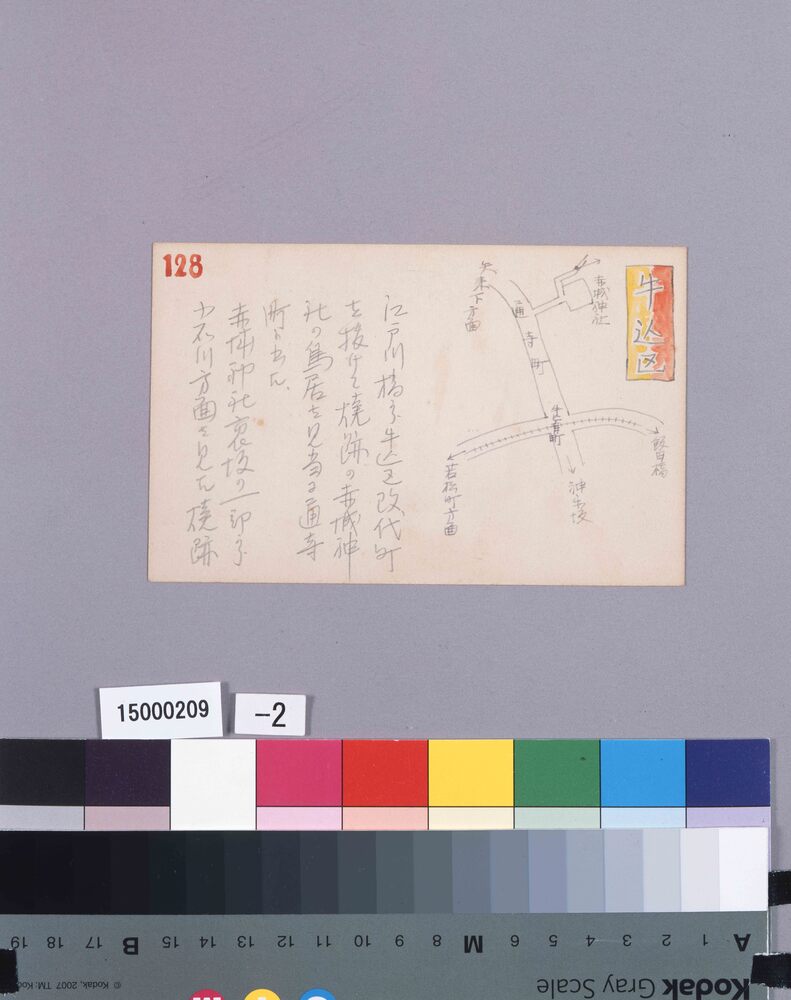 128
牛込区
赤城神社
矢来下方面
通
寺
町
肴町
神楽坂
若松町方面
飯田橋
江戸川橋より牛込区改代町
を抜けて焼跡の赤城神
社の鳥居を見当に通寺
町に出た、
赤城神社裏坂の一部より
小石川方面を見た焼跡
15000209
-2
19 18 17 B 16 15 14 13 12 11 10 9 8 M 7 6 5 4 3 2 1 A
© Kodak, 2007 TM: Kod
Kodak Gray Scale